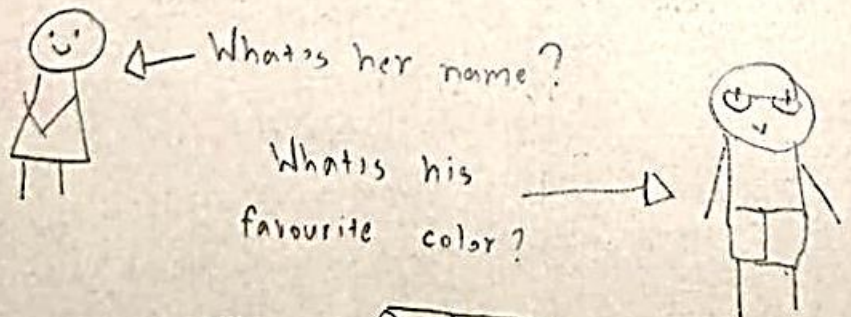 What's her name?
What's his
favourite color?